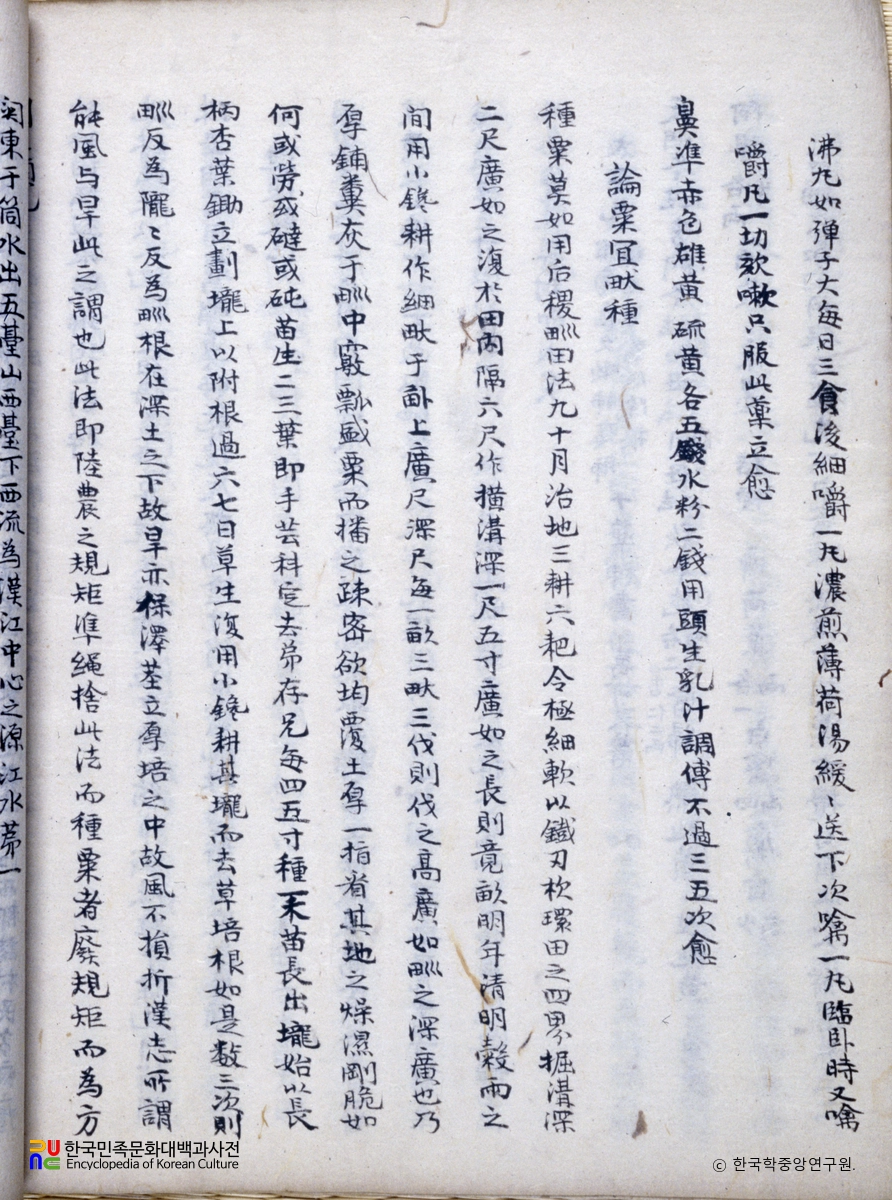 沸丸如弹子大每日三食後細嚼一丸濃煎薄荷湯緩〻送下次噙一丸臨臥時又噙
嚼凡一切欬嗽只服此藥立愈
鼻準赤色雄黃硫黃各五錢水粉二錢用頭生乳汁調傅不過三五次愈
論粟宜畎種
種粟莫如用后稷甽田法九十月治地三耕六耙令極細軟以鐵刃杴環田之四界掘溝深
二尺廣如之復於田內隔六尺作橫溝深一尺五寸廣如之長則竟畝明年清明穀雨之
間用小鑱耕作細畎于畝上廣尺深尺每一畝三畎三伐則伐之高廣如甽之深廣也乃
厚鋪糞灰于甽中竅瓢盛粟而播之疎密欲均覆土厚一指省其地之燥濕剛脆如
何或勞或磟或砘苗生二三葉即手芸科定去弟存兄每四五寸種一禾苗長出壠始以長
柄杏葉鋤立劃壠上以附根過六七日草生復用小鑱耕其壠而去草培根如是数三次則
甽反為隴〻反為甽根在深土之下故旱亦保澤莖立厚培之中故風不損折漢志所謂
能風与旱此之謂也此法即陸農之規矩準绳捨此法而種粟者廢規矩而為方
関東于筒水出五臺山西臺下西流為漢江中心之源江水苐一
한국민족문화대백과사전
Encyclopedia of Korean Culture
ⓒ 한국학중앙연구원.